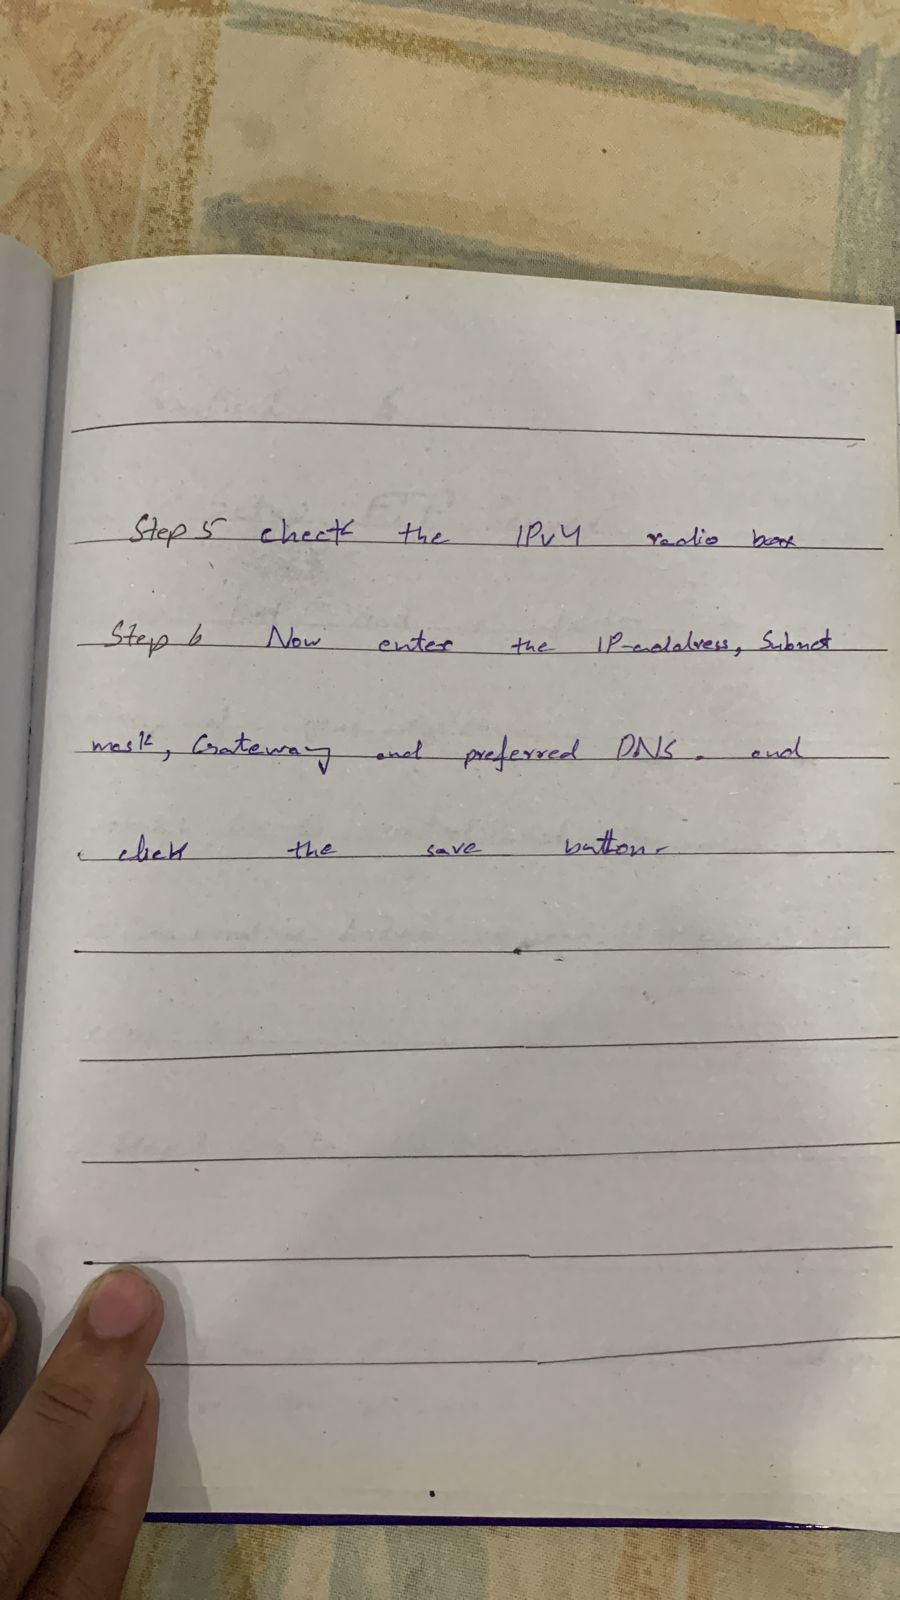 Step 5 check the IPv4 radio box
Step 6 Now enter the IP-address, Subnet
mask, Gateway and preferred DNS. and
click the save button.